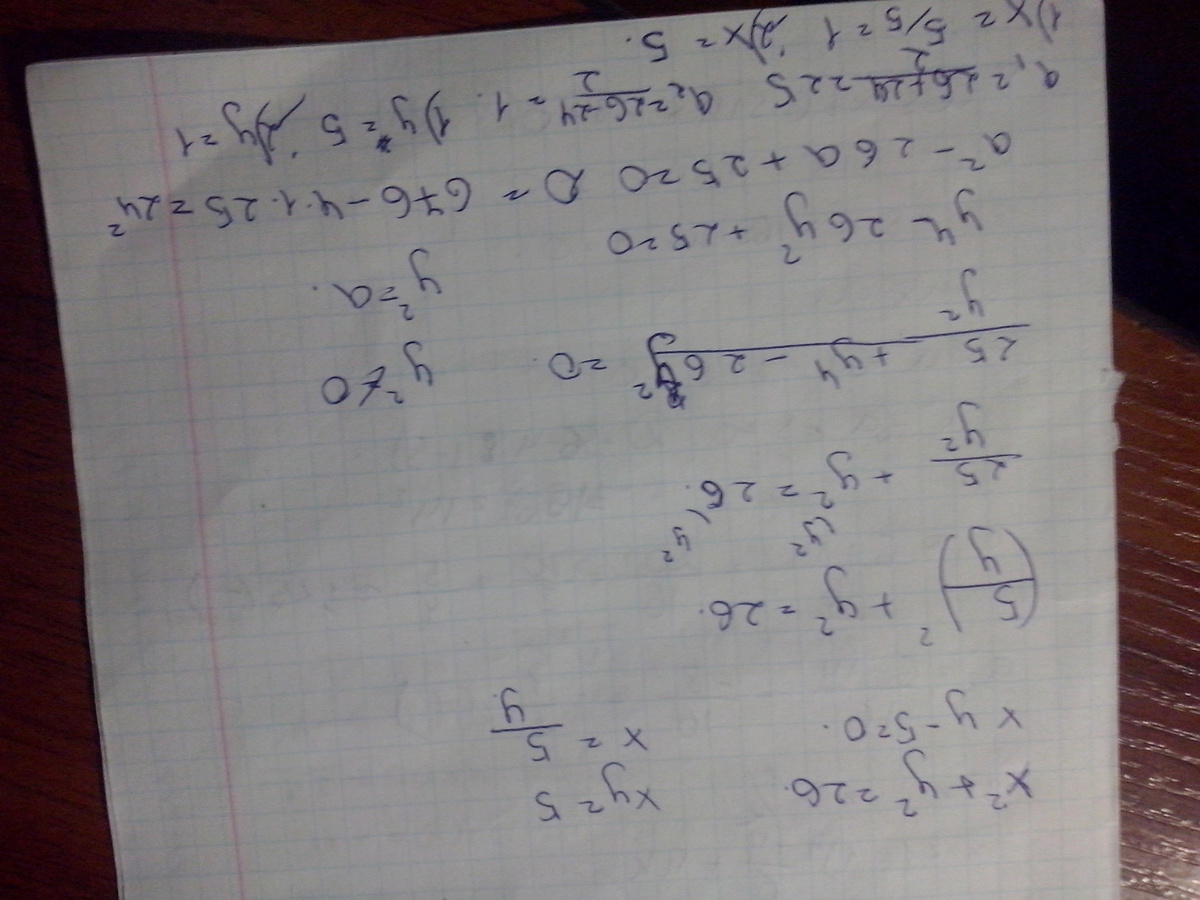 x² + y² = 26. xy = 5
xy - 5 = 0. x = 5/y.
(5/y)² + y² = 26.
(y² (y²
25/y² + y² = 26.
(25 + y⁴ - 26y²)/y² = 0. y² ≠ 0
y² = a.
y⁴ - 26y² + 25 = 0
a² - 26a + 25 = 0 D = 676 - 4·1·25 = 24²
a₁ = (26+24)/2 = 25 a₂ = (26-24)/2 = 1. 1) y = 5; 2) y = 1
1) x = 5/5 = 1; 2) x = 5.